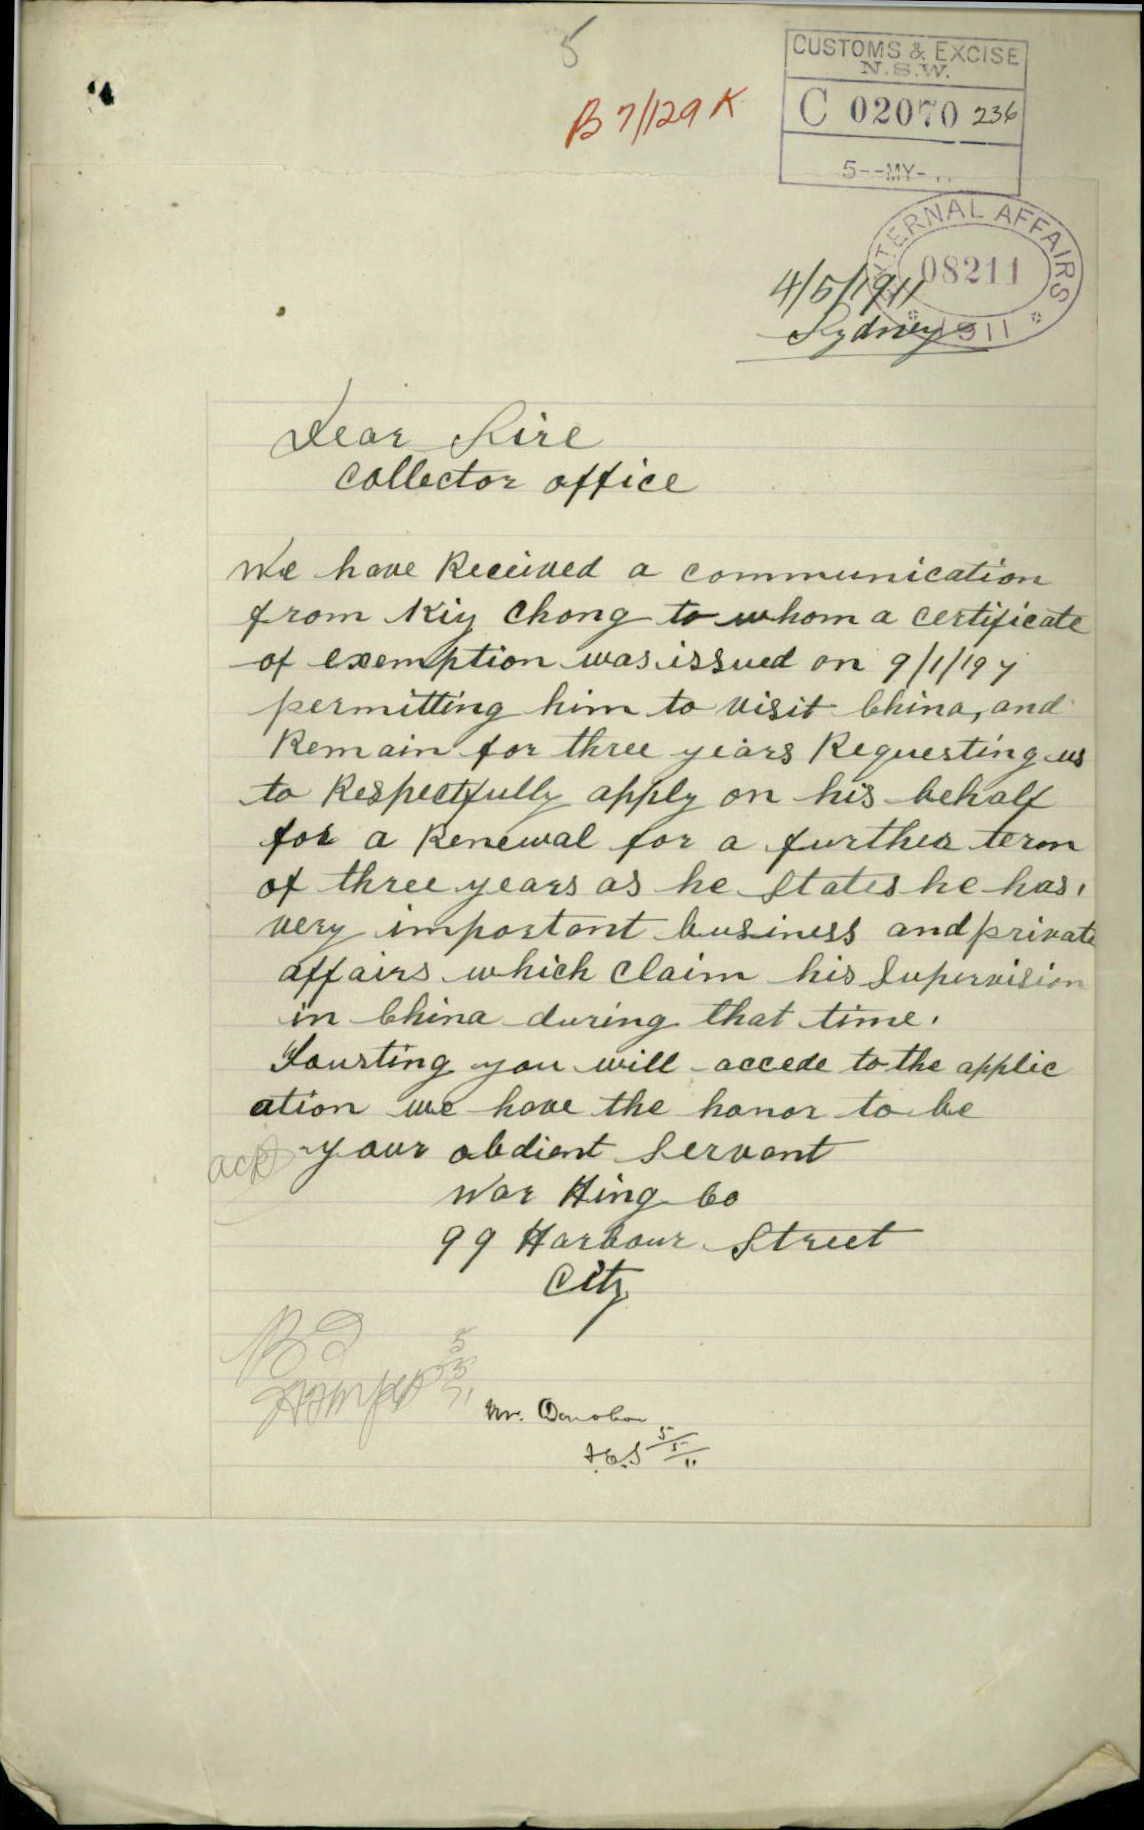 5
B 7/129 K
CUSTOMS & EXCISE
N.S.W.
C 02070 236
5--MY-..
EXTERNAL AFFAIRS
08211
1911
4/5/1911
Sydney
Dear Sire
Collector office
We have Received a communication
from Kiy Chong to whom a certificate
of exemption was issued on 9/1/197
permitting him to visit China, and
Remain for three years Requesting us
to Respectfully apply on his behalf
for a Renewal for a further term
of three years as he States he has,
very important business and private
affairs which claim his Supervision
in China during that time.
Tousting you will accede to the applic
ation we have the honor to be
your obdient Servant
War Hing Co
99 Harbour Street
City
ack
Mr. Donohoe
5/5/11